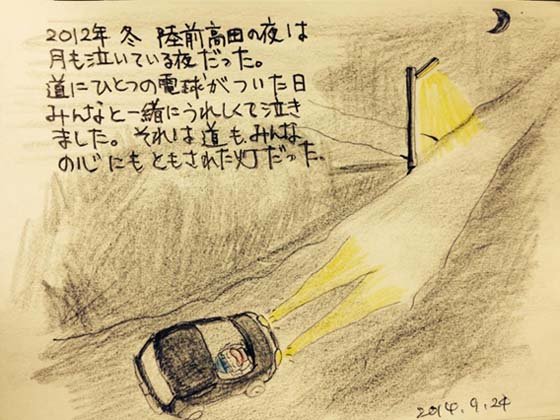 2012年 冬 陸前高田の夜は
月も泣いている夜だった。
道にひとつの電球がついた日
みんなと一緒にうれしくて泣き
ました。それは道も、みんな
の心にもともされた灯だった。
2014.9.24